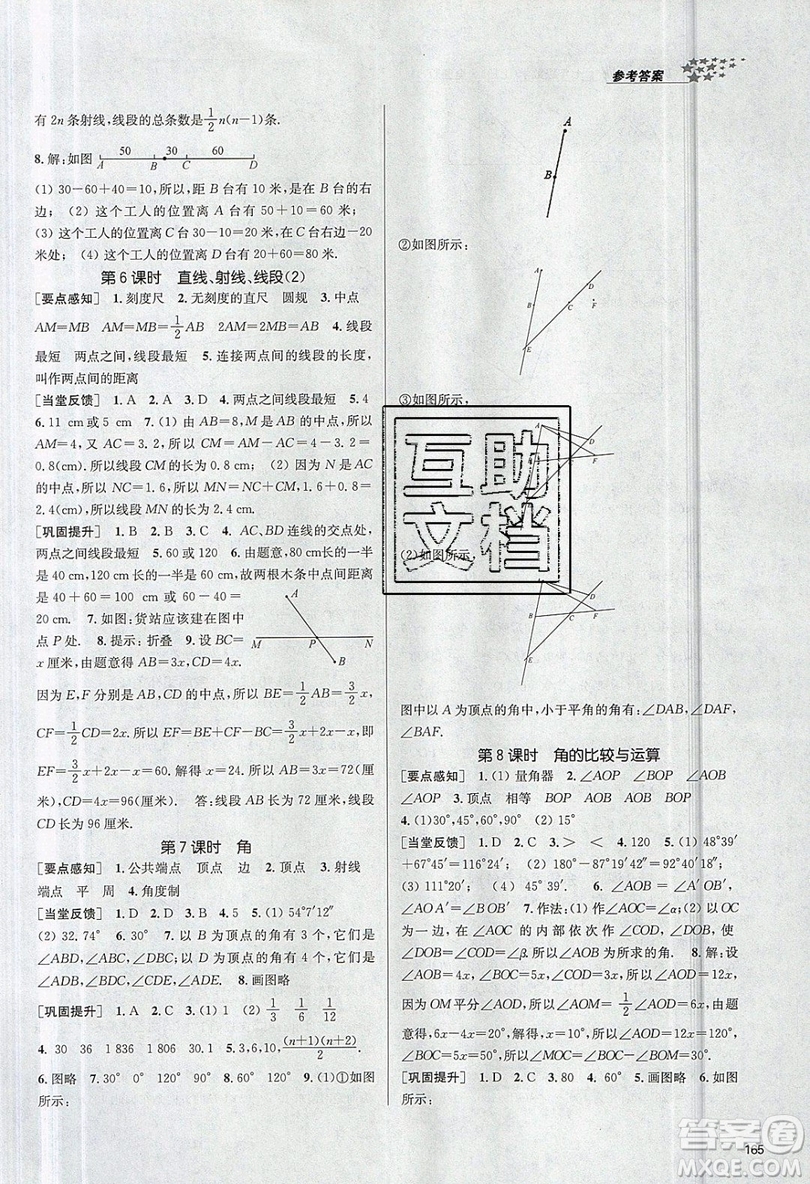 参考答案
有 2n 条射线,线段的总条数是1/2n(n−1)条.
8.解:如图
50 30
A B C D
(1) 30−60+40=10,所以,距 B 台有 10 米,且在 B 台的右
边; (2) 这个工人的位置离 A 台有 50+10=60 米;
(3) 这个工人的位置离 C 台 30−10=20,在 C 台左边−20
米处; (4) 这个工人的位置离 D 台有 20+60=80 米.
第 6 课时 直线、射线、线段(2)
[要点感知] 1.刻度尺 无刻度的直尺 圆规 3.中点
AM=MB AM=MB=1/2AB 2AM=2MB=AB 4.线段
最短 两点之间,线段最短 5.连接两点间的线段的长度,
叫作两点间的距离
[当堂反馈] 1.A 2.A 3.D 4.两点之间线段最短 5.3
6.11 cm或5 cm 7.(1) 由 AB=8,M 是 AB 的中点,所以
AM=4,又 AC=3.2,所以 CM=AM−AC=4−3.2=
0.8(cm).所以线段 CM 的长为 0.8 cm; (2) 因为 N 是 AC
的中点,所以 NC=1.6,所以 MN=NC+CM=1.6+0.8=
2.4(cm),所以线段 MN 的长为 2.4 cm.
[巩固提升] 1.B 2.B 3.C 4.AC,BD 连线的交点处,
两点之间线段最短 5.60或120 6.由题意,60 cm长的一半
是 40 cm,120 cm长的一半是 60 cm,故两根木条中点间距离
是 40+60=100 cm或60−40=
20 cm. 7.如图:货站应该建在图中
点 P 处. 8.提示:折叠 9.设 BC=
x 厘米,由题意得 AB=3x,CD=4x,
A
M P N
B
因为 E,F 分别是 AB,CD 的中点,所以 BE=1/2AB=3/2x,
CF=1/2CD=2x.所以 EF=BE−BC+CF=3/2x−x+2x,即
EF=5/2x=60,解得 x=24.所以 AB=3x=72(厘米),
CD=4x=96(厘米). 答:线段 AB 长为 72 厘米,线段
CD 长为 96 厘米.
第 7 课时 角
[要点感知] 1.公共端点 顶点 边 2.顶点 3.射线
端点 平 周 4.角度制
[当堂反馈] 1.D 2.D 3.B 4.5 5.(1) 54°7′12″
(2) 32.74° 6.B 7.以 B 为顶点的角有 3 个,它们是
∠ABD,∠ABC,∠DBC;以 D 为顶点的角有 4 个,它们是
∠ADE,∠ADB,∠BDC,∠CDE, 8.画图略
[巩固提升] 1.A 2.C 3.(1) 1 (2) 1/4 1/6 1/12
4. 30 36 1 836 1 806 30.1 5.3,6,10,(n+1)(n+2)/2.
6.图略 7.30° 0° 120° 90° 8.图略 9.(1)①如图
所示:
A
B
②如图所示:
C
F
E
③如图所示,
A
D
F
(2)如图所示,
A
D
B
C
F
E
图中以 A 为顶点的角中,小于平角的角有:∠DAB,∠DAF,
∠BAF.
第 8 课时 角的比较与运算
[要点感知] 1.(1) 量角器 2.∠AOP ∠BOP ∠AOB
∠AOP 3.顶点 相等 BOP AOP AOB BOP
4.(1)30°,45°,60°,90° (2) 15°
[当堂反馈] 1.D 2.C 3.> < 4.120 5.(1) 48°39′+
67°45′=116°24′; (2) 180°−87°19′42″=92°40′18″;
(3) 111°10′; (4) 19°11′15″. 6.∠AOB=∠A′OB′,
∠AO A′=∠B OB′ 7.作法:(1) 作∠AOC=∠α; (2) 以
OC为一边,在∠AOC 的内部依次作∠COD,∠DOB,使
∠COD=∠DOB=∠β,则∠AOB 为所求的角. 8.解:设
∠AOB=x,则∠AOC=2x,∠AOD=3x,∠AOM=3x,
因为 OM 平分∠AOM,所以∠AOM=1/2∠AOD=x,由题
意得,6x−4x=20°,解得,x=10°,所以∠AOD=12x=120°,
∠BOC=5x=50°; 所以∠AOD=12x=120°,
∠BOC=5x=50°.
[巩固提升] 1.D 2.C 3.80 4.60° 5.画图略 6.(1)
165
互助文档
答案圈
MXQE.COM